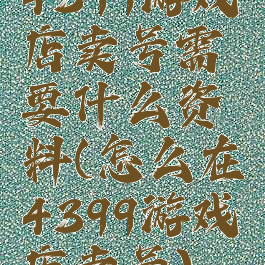 4399游戏
店卖号需
要什么资
料(怎么在
4399游戏
店卖号)